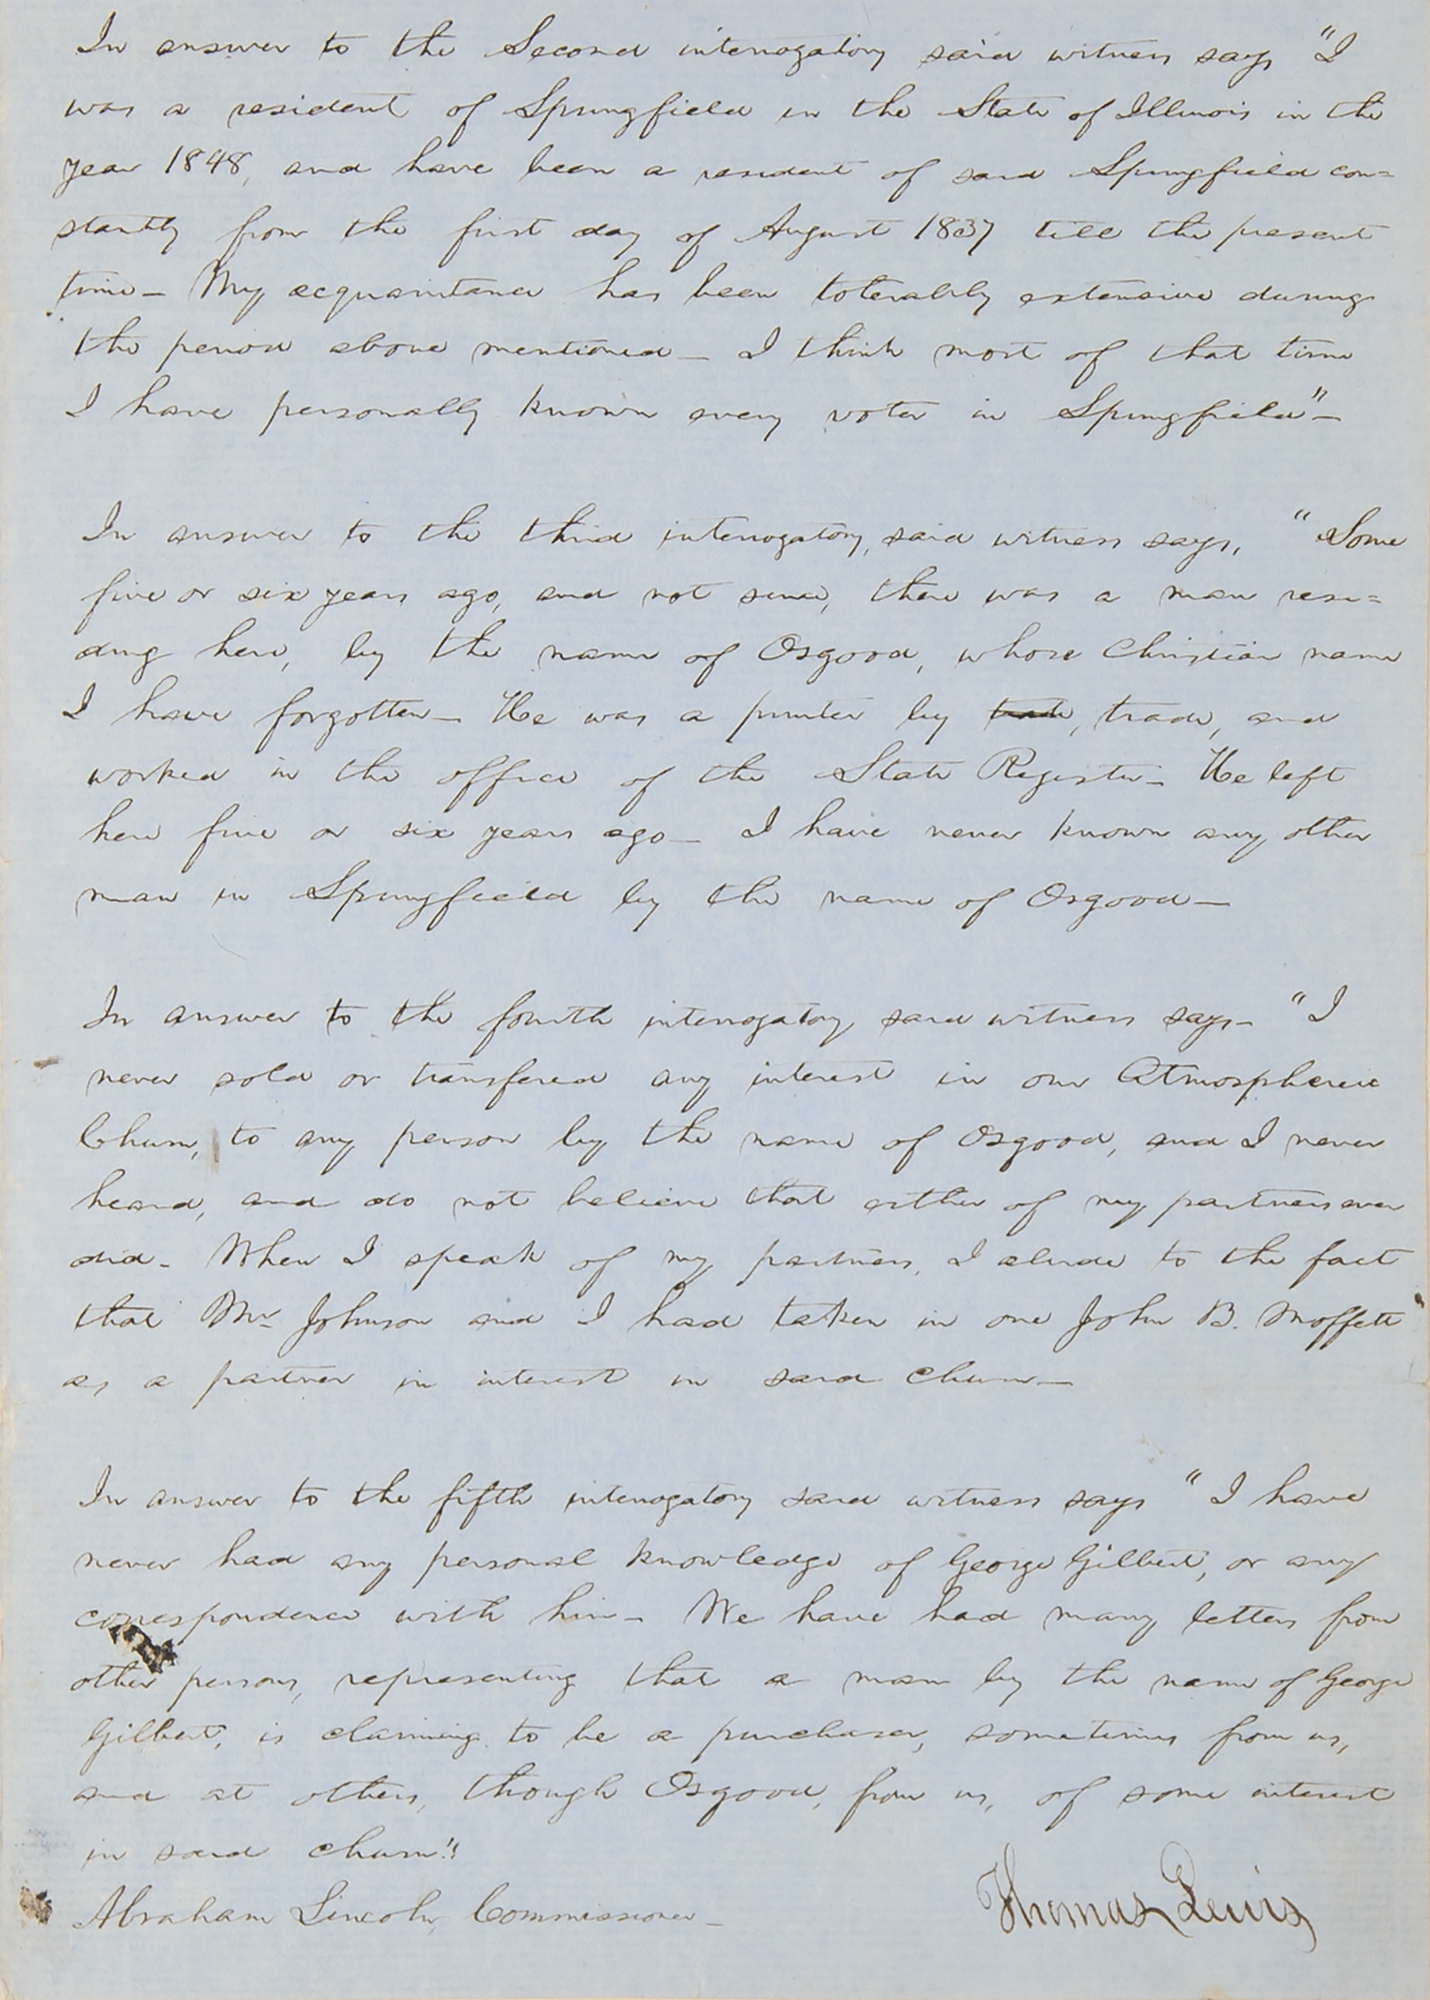 In answer to the Second interrogatory said witness says "I
was a resident of Springfield in the State of Illinois in the
year 1848, and have been a resident of said Springfield con=
stantly from the first day of August 1837 till the present
time— My acquaintance has been tolerably extensive during
the period above mentioned— I think most of that time
I have personally known every voter in Springfield"—
In answer to the third interrogatory, said witness says, "Some
five or six years ago, and not since, there was a man resi=
ding here, by the name of Osgood, whose Christian name
I have forgotten— He was a printer by trade, trade, and
worked in the office of the State Register— He left
here five or six years ago— I have never known any other
man in Springfield by the name of Osgood—
In answer to the fourth interrogatory said witness says— "I
never sold or transfered any interest in our Atmospheric
Churn, to any person by the name of Osgood, and I never
heard, and do not believe that either of my partners ever
did— When I speak of my partners, I alude to the fact
that Mr Johnson and I had taken in one John B. Moffett
as a partner in interest in said churn—
In answer to the fifth interrogatory said witness says "I have
never had any personal knowledge of George Gilbert, or any
correspondence with him— We have had many letters from
other persons, representing that a man by the name of George
Gilbert, is claiming to be a purchaser, sometimes from us,
and at others, though Osgood, from us, of some interest
in said churn."
Abraham Lincoln, Commissioner— Thomas Lewis